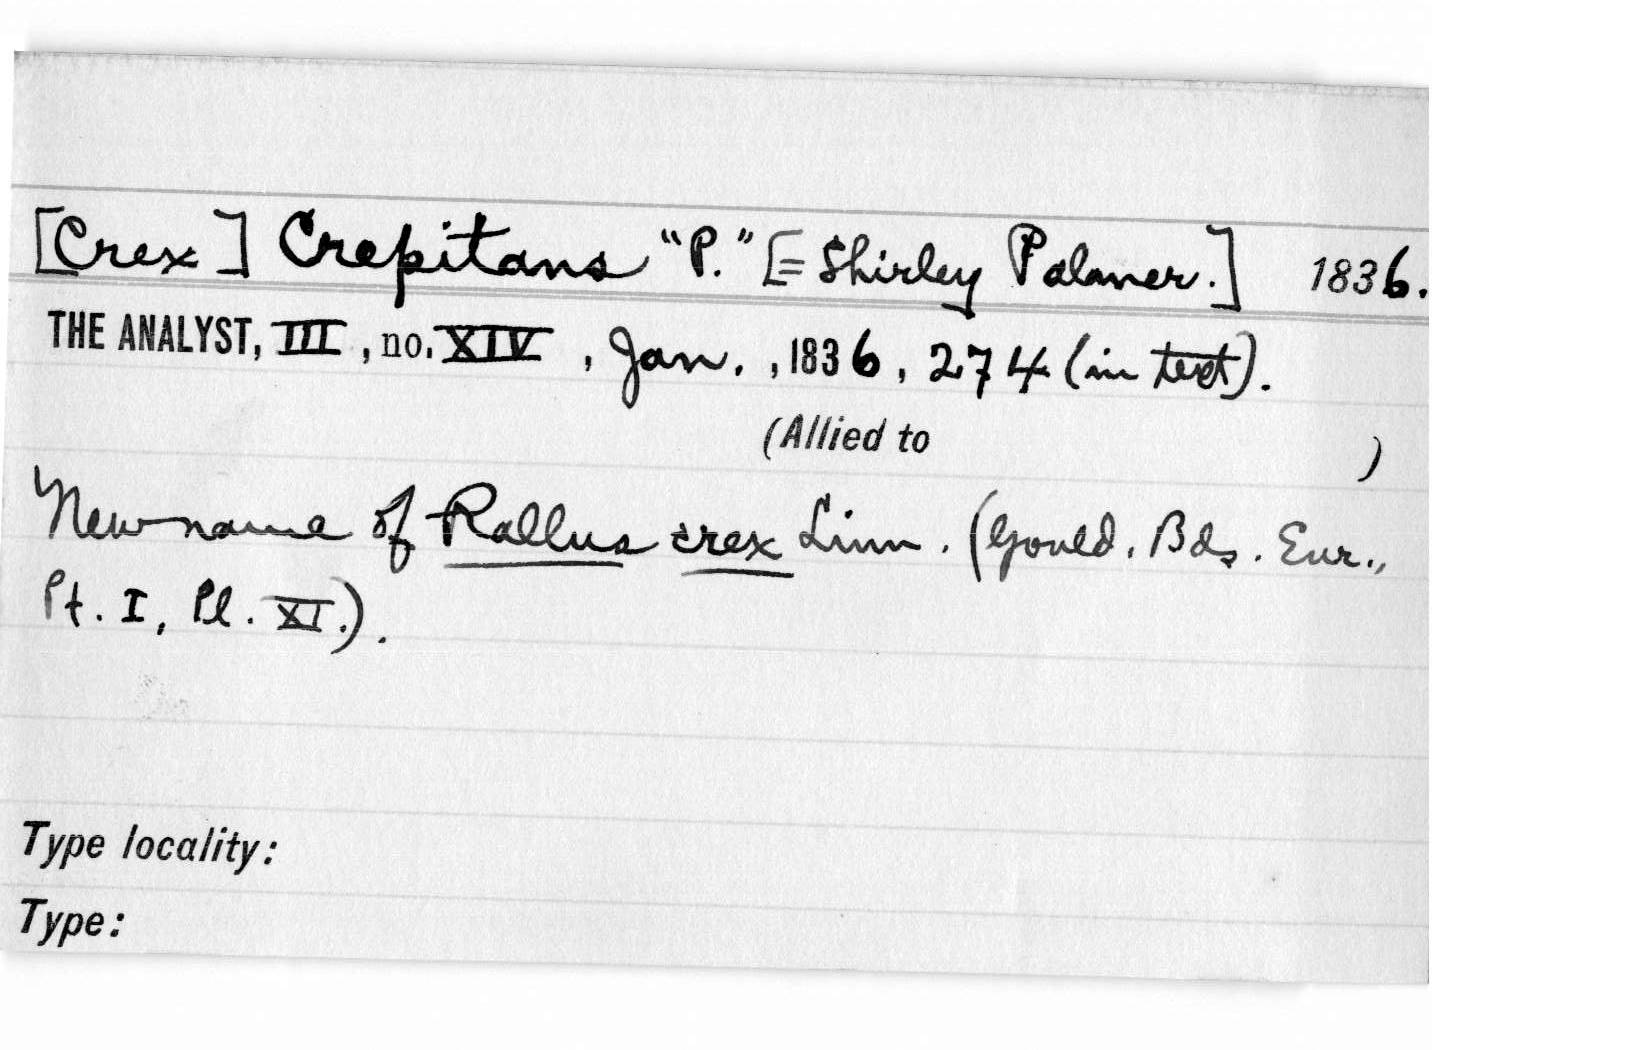 [Crex] Crepitans "P." [= Shirley Palmer.] 1836.
THE ANALYST, III, no. XIV, Jan., 1836, 274 (in text).
(Allied to )
New name of Rallus crex Linn. (Gould, Bds. Eur.,
Pt. I, Pl. XI.).
Type locality:
Type: